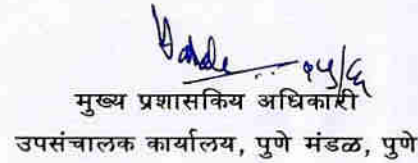 १५/६
मुख्य प्रशासकिय अधिकारी
उपसंचालक कार्यालय, पुणे मंडळ, पुणे